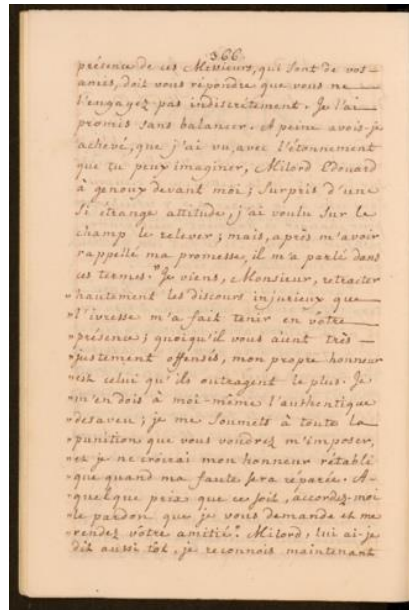 366.
présence de ces Messieurs, qui sont de vos
amis, doit vous répondre que vous ne
l'engagez pas indiscretement. Je l'ai
promis sans balancer. A peine avois-je
achevé, que j'ai vu, avec l'étonnement
que tu peux imaginer, Milord Edouard
à genoux devant moi; Surpris d'une
si étrange attitude, j'ai voulu sur le
champ le relever; mais, après m'avoir
rappellé ma promesse, il m'a parlé dans
ces termes. "Je viens, Monsieur, retracter
"hautement les discours injurieux que
"l'ivresse m'a fait tenir en vôtre
"présence; quoiqu'il vous aient très
"justement offensés, mon propre honneur
"est celui qu'ils outragent le plus. Je
"m'en dois à moi-même l'authentique
"desaveu; je me soumets à toute la
"punition que vous voudrez m'imposer,
"et je ne croirai mon honneur rétabli
"que quand ma faute sera réparée. A
"quelque prix que ce soit, accordez-moi
"le pardon que je vous demande et me
"rendez vôtre amitié." Milord, lui ai-je
dit aussi tôt, je reconnois maintenant